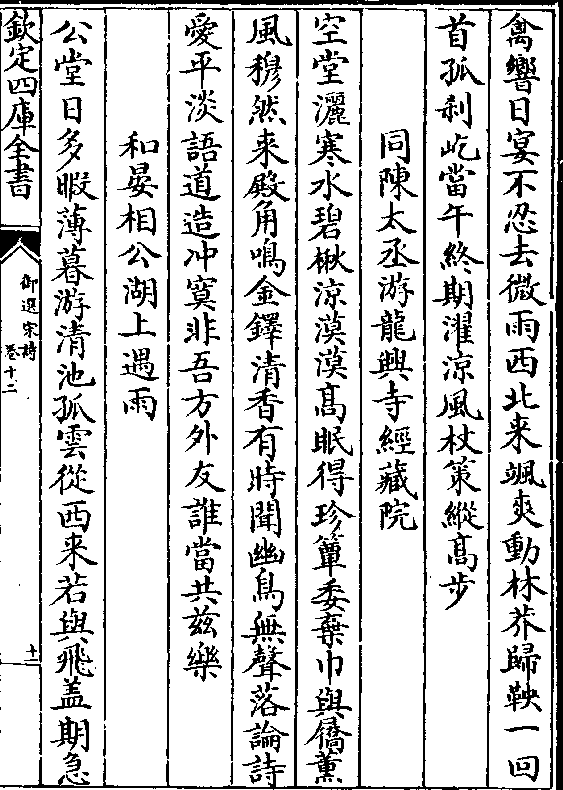 禽響日宴不忍去微雨西北来颯爽動林芥歸鞅一回
首孤刹屹當午終期濯涼風杖策縱髙步
同陳太丞游龍興寺經藏院
空堂灑寒水碧楸涼漠漠髙眠得珍簟委棄巾與屩薫
風穆然来殿角鳴金鐸清香有時聞幽鳥無聲落論詩
愛平淡語道造冲寞非吾方外友誰當共兹樂
和晏相公湖上遇雨
公堂日多暇薄暮游清池孤雲從西来若與飛盖期急
欽定四庫全書
御選宋詩
卷十二
十二